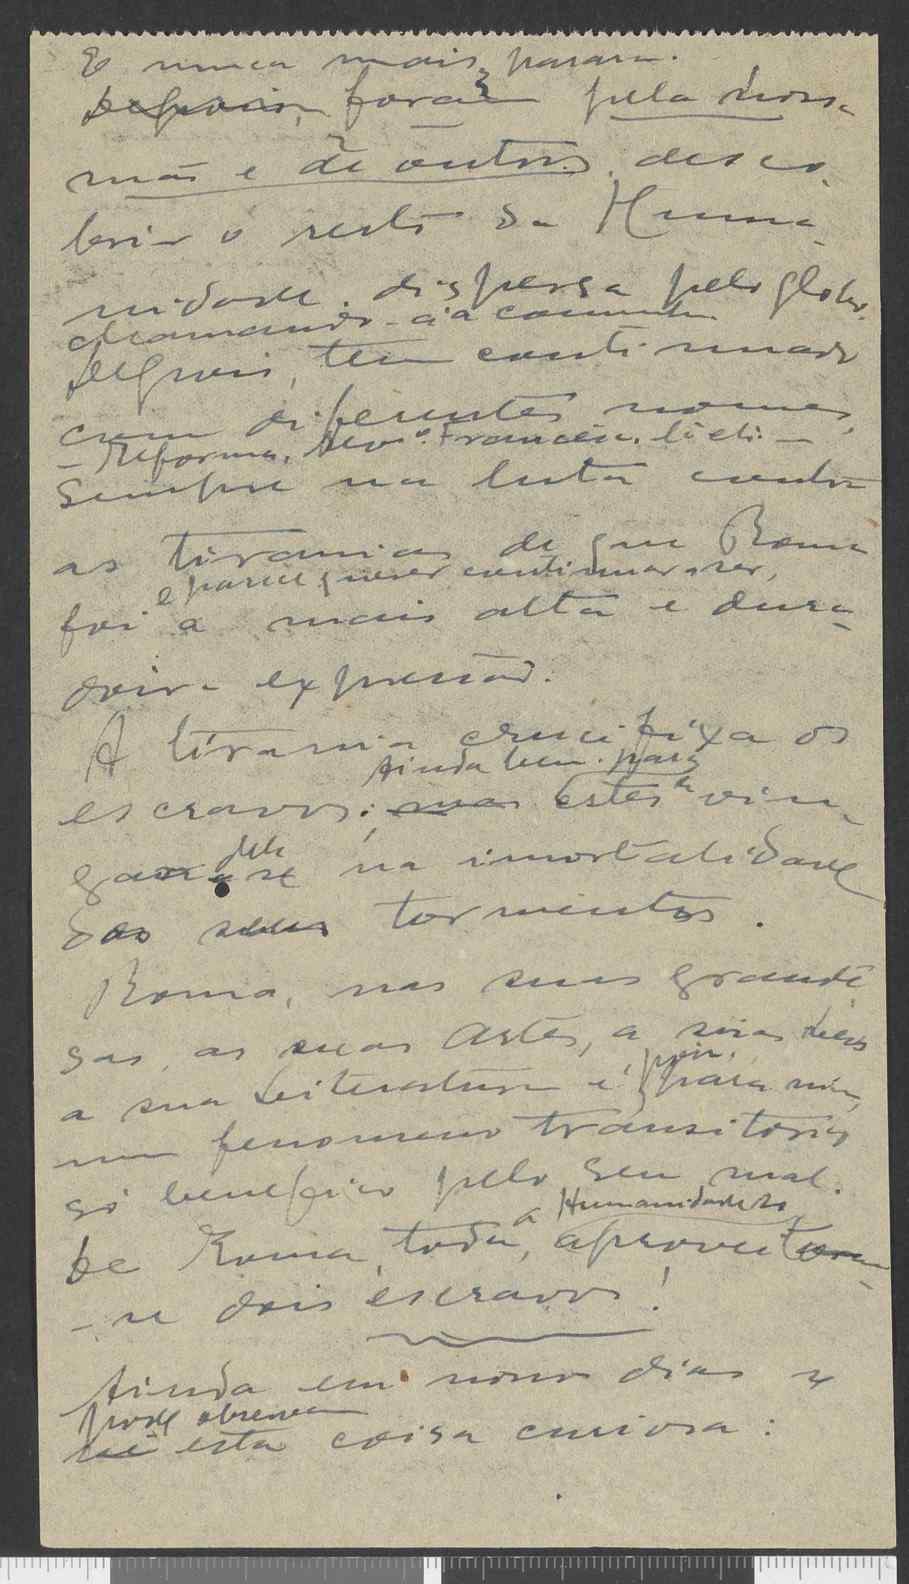 E nunca mais parara.
Depois, foram pela nossa
mão e de outros, desco
brir o resto da Huma-
nidade, dispersa pelo globo,
chamando-a à comunh
Depois, tem continuado
com diferentes nomes,
– Reforma, Rev. Francesa, etc. –
sempre na luta contra
as tiranias de que Roma
e parece querer continuar a ser,
foi a mais alta e dura-
doira expressão.
A tirania crucifixa os
Ainda bem. pois
escravos; mas estes vin-
gam-se na imortalidade
dos seus tormentos.
Roma, nas suas grande
sas, as suas Artes, a suas Leis
a sua Literatura é, pois, para mim,
um fenomeno transitorio
só benefico pelo seu mal.
a Humanidade só
De Roma, toda, aproveitou
-se dois escravos!
Ainda em nossos dias se
pode observar
vê esta coisa curiosa: